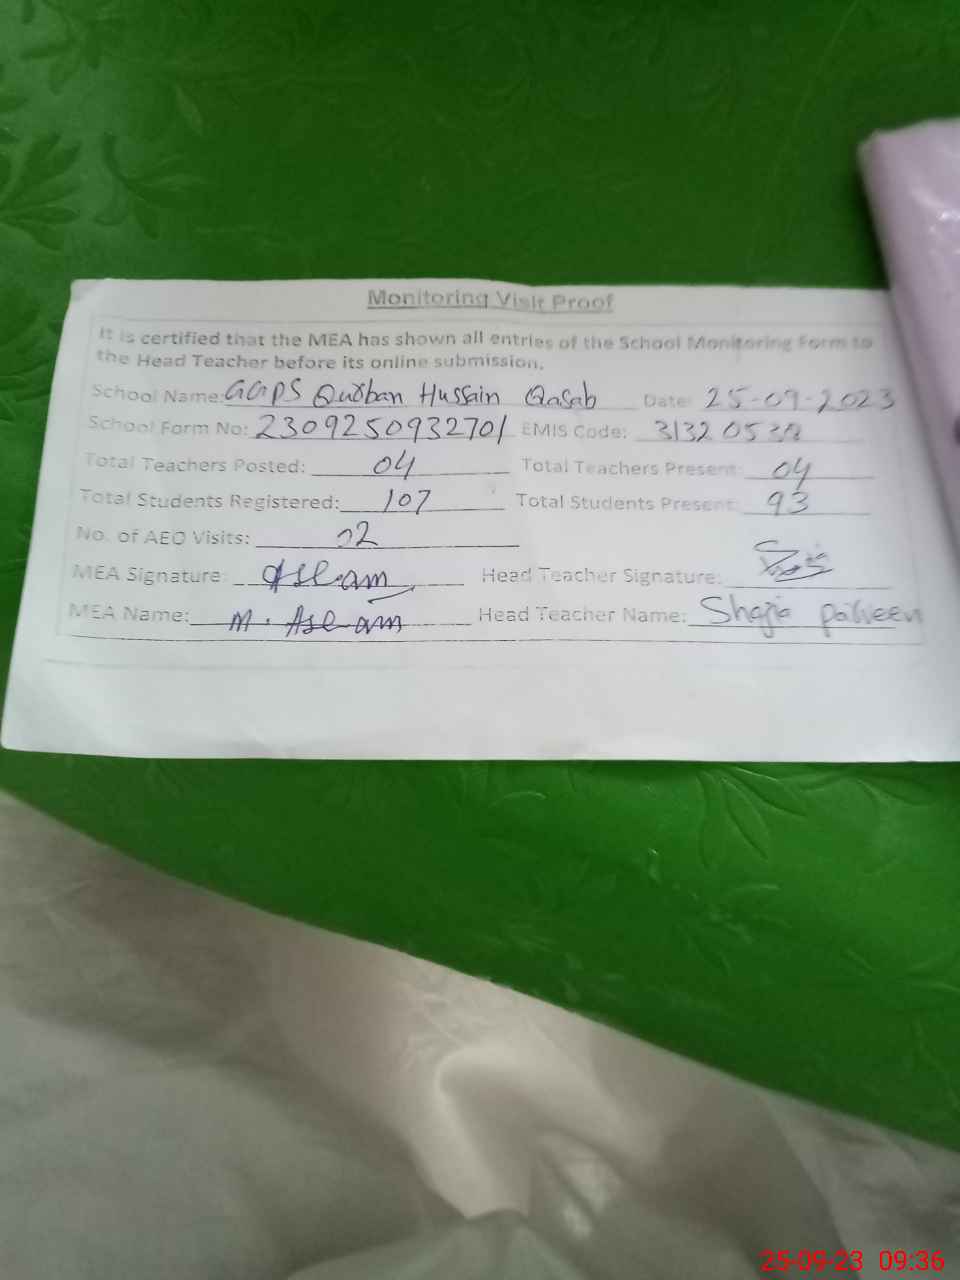 Monitoring Visit Proof
It is certified that the MEA has shown all entries of the School Monitoring Form to
the Head Teacher before its online submission.
School Name: GGPS Qurban Hussain Qasab Date: 25-09-2023
School Form No: 230925093270/ EMIS Code: 31320538
Total Teachers Posted: 04 Total Teachers Present: 04
Total Students Registered: 107 Total Students Present: 93
No. of AEO Visits: 02
MEA Signature: Aslam Head Teacher Signature:
MEA Name: M. Aslam Head Teacher Name: Shazia Parveen
25-09-23 09:36